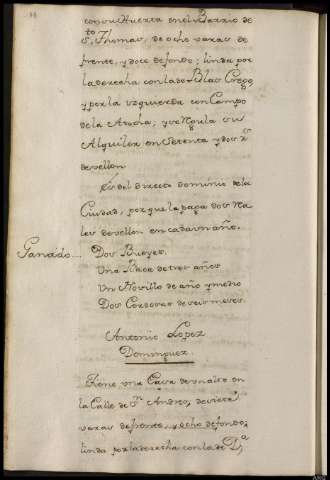 con su Huerta en el Barrio de
Sto. Thomas, de ocho varas de
frente, y doce de fondo; linda por
la derecha con la de Blas Crego
y por la izquierda con Campo
de la Atocha; y se regula su
Alquiler en Setenta y dos rs
de vellon
Es del directo dominio de la
Ciudad, por que la paga dos Rea
les de vellon en cada un año.
Ganado... Dos Bueyes.
Una Baca de tres años
Un Novillo de año y medio
Dos Corderos de seis meses.
Antonio Lopez
Dominguez.
Tiene una Casa de un alto en
la Calle de Sn. Andres, de siete
varas de frente, y ocho de fondo;
linda por la derecha con la de Da